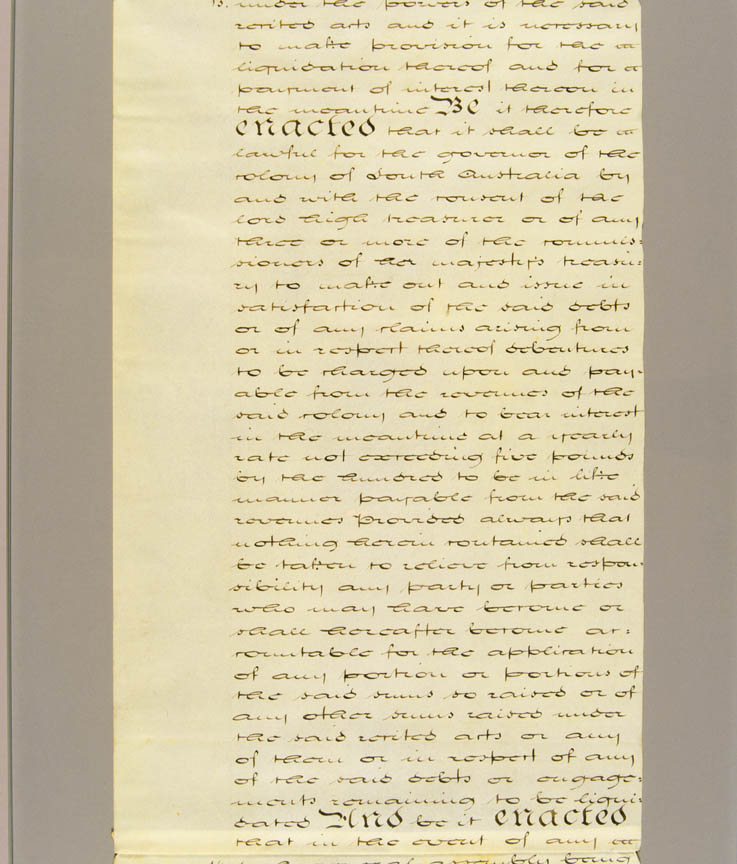 under the powers of the said
recited acts and it is necessary
to make provision for the
liquidation thereof and for
payment of interest thereon in
the meantime Be it therefore
enacted that it shall be
lawful for the governor of the
colony of South Australia by
and with the consent of the
lord high treasurer or of any
three or more of the commis:
sioners of her majesty's treasu:
ry to make out and issue in
satisfaction of the said debts
or of any claims arising from
or in respect thereof debentures
to be charged upon and pay-
able from the revenues of the
said colony and to bear interest
in the meantime at a yearly
rate not exceeding five pounds
by the hundred to be in like
manner payable from the said
revenues Provided always that
nothing herein contained shall
be taken to relieve from respon
sibility any party or parties
who may have become or
shall hereafter become ac:
countable for the application
of any portion or portions of
the said sums so raised or of
any other sums raised under
the said recited acts or any
of them or in respect of any
of the said debts or engage:
ments remaining to be liqui:
dated And be it enacted
that in the event of any
assembly being